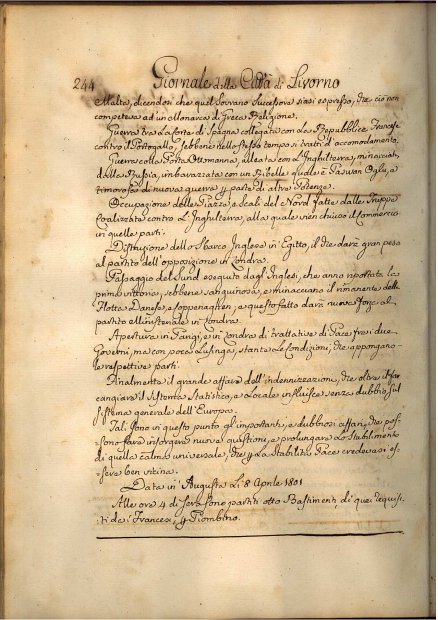 244 Giornale della Città di Livorno
Malta, dicendosi che quel Sovrano Successore siasi espresso, che ciò non
competeva ad un Monarca di Greca Religione.
Guerra tra la Corte di Spagna collegata con la Repubblica Francese
contro il Portogallo, sebbene nello stesso tempo si tratti d'accomodamento.
Guerra colla Porta Ottomanna, alleata con L'Inghilterra, minacciata
dalla Russia, imbarazzata con un Ribelle quale è Paswan Oglu, e
timorosa di nuova guerra p parte di altre Potenze.
Occupazione delle Piazze, e Scali del Nord fatte dalle Truppe
Coalizzate contro L'Inghilterra, alla quale vien chiuso il Commercio
in quelle parti.
Distruzione dello Sbarco Inglese in Egitto, il che darà gran peso
al partito dell'opposizione in Londra.
Passaggio del Sund eseguito dagl'Inglesi, che anno riportata la
prima vittoria, sebbene sanguinosa, e minacciano il rimanente della
Flotta Danese, e Coppenaghen, e questo fatto darà nuova forza al
partito Ministeriale in Londra.
Apertura in Parigi, e in Londra di trattative di Pace fra i due
Governi, ma con poca Lusinga, stante le Condizioni, che appongano
le respettive parti.
Finalmente il grande affare dell'indennizzazioni, che oltre il far
cangiare il Sistema Statistico, e Locale influisce senza dubbio, sul
sistema generale dell'Europa.
Tali sono in questo punto gli importanti, e dubbiosi affari, che pos-
sono fare insorgere nuove questioni, e prolungare lo stabilimento
di quella calma universale, che p la stabilità Pace credevasi es-
sere ben vicina.
Data in Augusta li 8 Aprile 1801
Alle ore 4 di sera sono partiti otto Bastimenti di quei requisi-
ti da i Francesi, p Piombino.